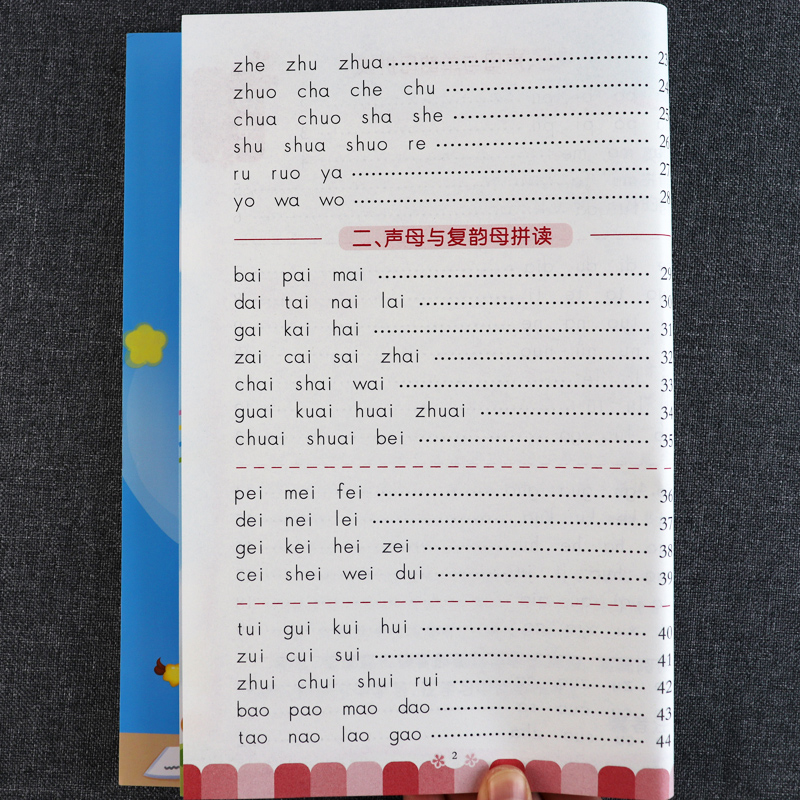 zhe zhu zhua ........................ 23
zhuo cha che chu ........................ 24
chua chuo sha she ........................ 25
shu shua shuo re ........................ 26
ru ruo ya ........................ 27
yo wa wo ........................ 28
二、声母与复韵母拼读
bai pai mai ........................ 29
dai tai nai lai ........................ 30
gai kai hai ........................ 31
zai cai sai zhai ........................ 32
chai shai wai ........................ 33
guai kuai huai zhuai ........................ 34
chuai shuai bei ........................ 35
pei mei fei ........................ 36
dei nei lei ........................ 37
gei kei hei zei ........................ 38
cei shei wei dui ........................ 39
tui gui kui hui ........................ 40
zui cui sui ........................ 41
zhui chui shui rui ........................ 42
bao pao mao dao ........................ 43
tao nao lao gao ........................ 44
2